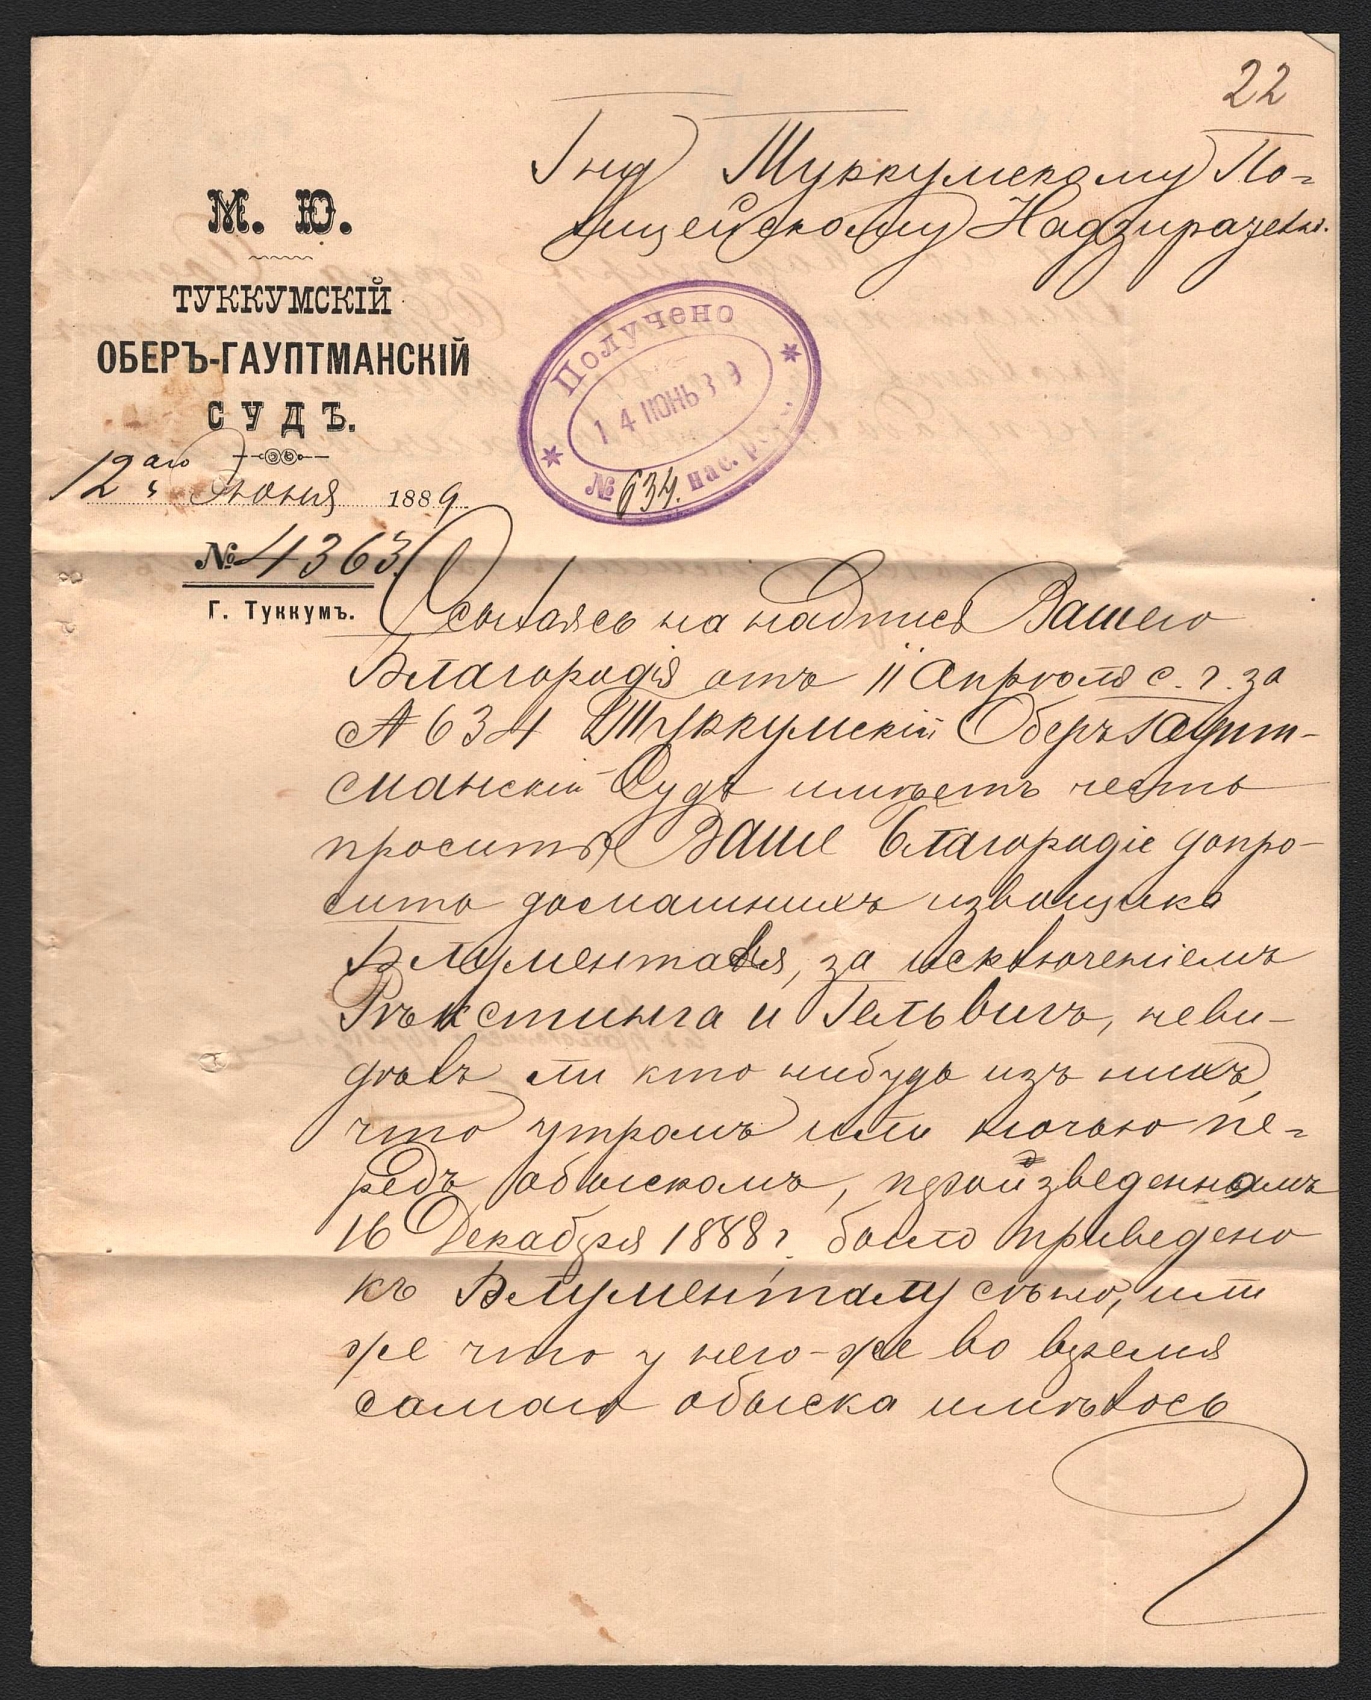 22
Гну Туккумскому По-
лицейскому Надзирателю.
М. Ю.
ТУККУМСКІЙ
ОБЕРЪ-ГАУПТМАНСКІЙ
СУДЪ.
12аго Июня 1889.
№ 4363.
Г. Туккумъ.
Получено
14 ІЮНЬ 89
№ 634. нас. рег.
Ссылаясь на надпись Вашего
Благородія отъ 11 Апрѣля с. г. за
№ 634 Туккумскій Оберъ Гаупт-
манскій Судъ имѣетъ честь
просить Ваше Благородіе допро-
сить домашнихъ извощика
Блументаля, за исключеніемъ
Рѣкстинга и Гельвигъ, неви-
дѣлъ ли кто нибудь изъ нихъ,
что утромъ или ночью пе-
редъ обыскомъ, произведеннымъ
16 Декабря 1888 г. было приведено
къ Блументалу сѣно, или
же что у него-же во время
самаго обыска имѣлось